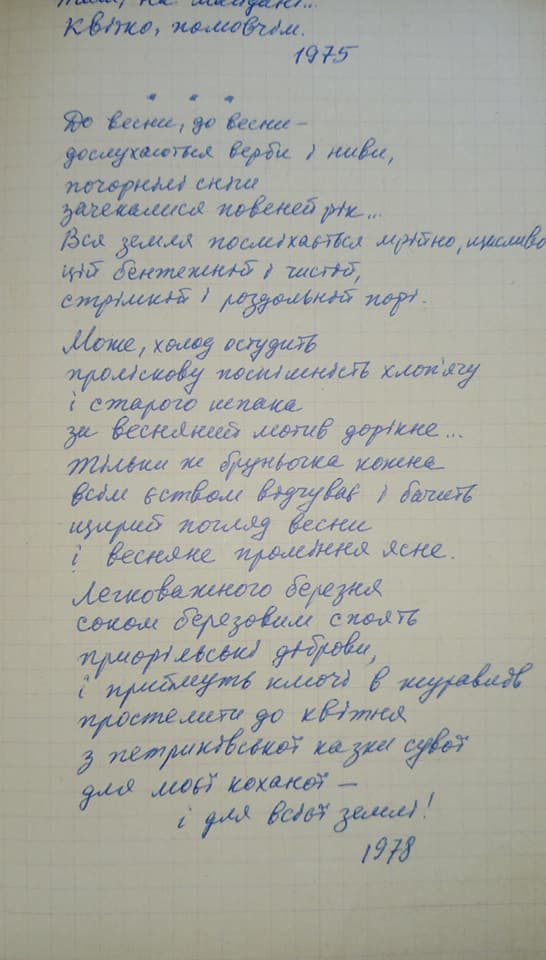 Квітко, помовчім.
1975
* * *
До весни, до весни –
дослухаються верби і ниви,
почорнілі сніги
зачекалися повеней рік...
Вся земля посміхається мрійно, щасливо
цій бентежній і чистій,
стрімкій і роздольній порі.
Може, холод остудить
проліскову поспішність хлоп'ячу
і старого шпака
за весняний мотив дорікне...
Тільки ж бруньочка кожна
всім єством відчуває і бачить
щирий погляд весни
і весняне проміння ясне.
Легковажного березня
соком березовим споять
приорільські діброви,
і приймуть ключі в журавлів
простелити до квітня
з петриківської казки сувої
для моєї коханої –
і для всієї землі!
1978